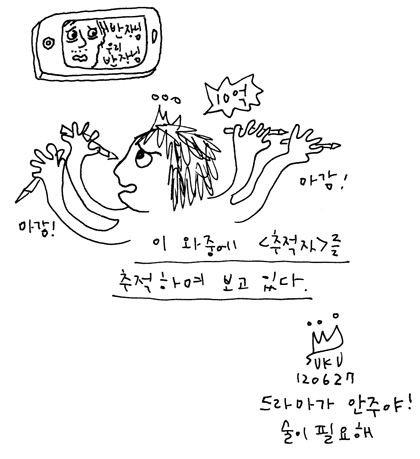 반장님
우리
반장님
10억
마감!
마감!
이 와중에 <추적자>를
추적하여 보고 있다.
SUKU
120627
드라마가 안주야!
술이 필요해